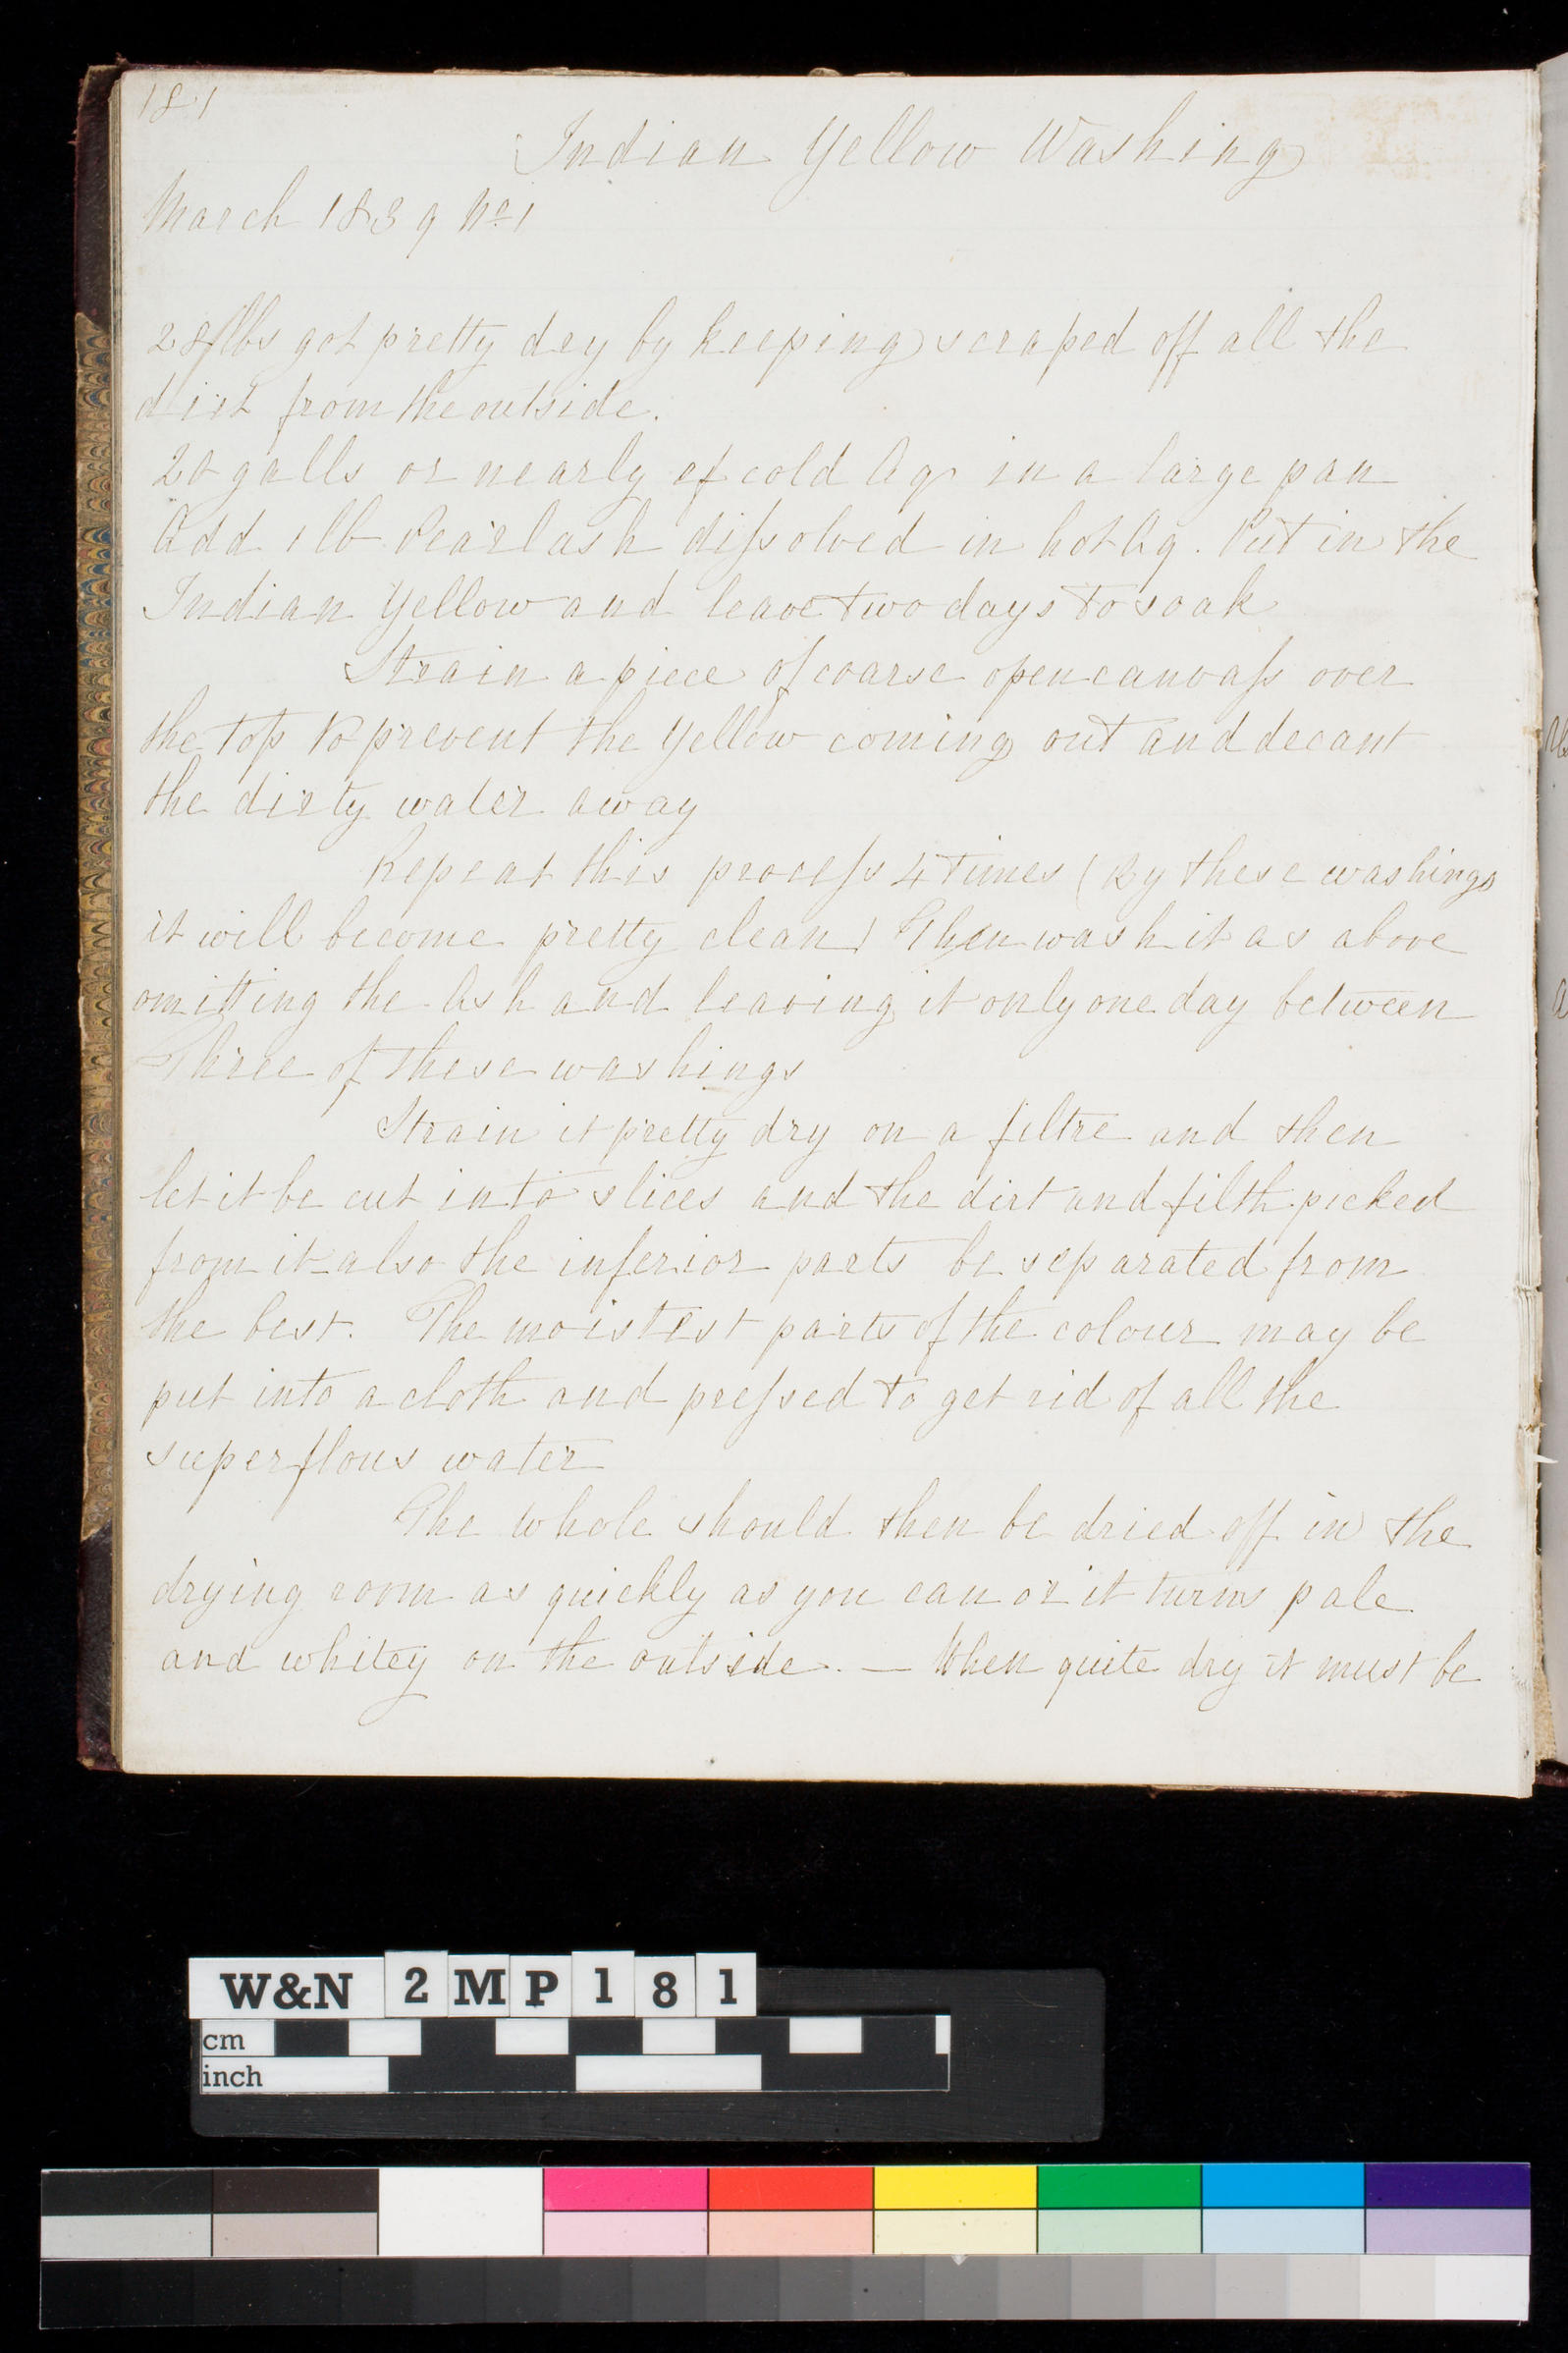 181
Indian Yellow Washing
March 1839 No. 1
28 lbs got pretty dry by keeping scraped off all the
dirt from the outside.
20 galls or nearly of cold Aq in a large pan
Add 1 lb Pearlash diſsolved in hot Aq. Put in the
Indian Yellow and leave two days to soak
Strain a piece of coarse open canvaſs over
the top to prevent the Yellow coming out and decant
the dirty water away
Repeat this proceſs 4 times (By these washings
it will become pretty clean) Then wash it as above
omitting the Ash and leaving it only one day between
Three of these washings
Strain it pretty dry on a filtre and then
let it be cut into slices and the dirt and filth picked
from it also the inferior parts be separated from
the best. The moistest parts of the colour may be
put into a cloth and preſsed to get rid of all the
superflous water
The whole should then be dried off in the
drying room as quickly as you can or it turns pale
and whitey on the outside. — When quite dry it must be
W&N 2MP181
cm
inch